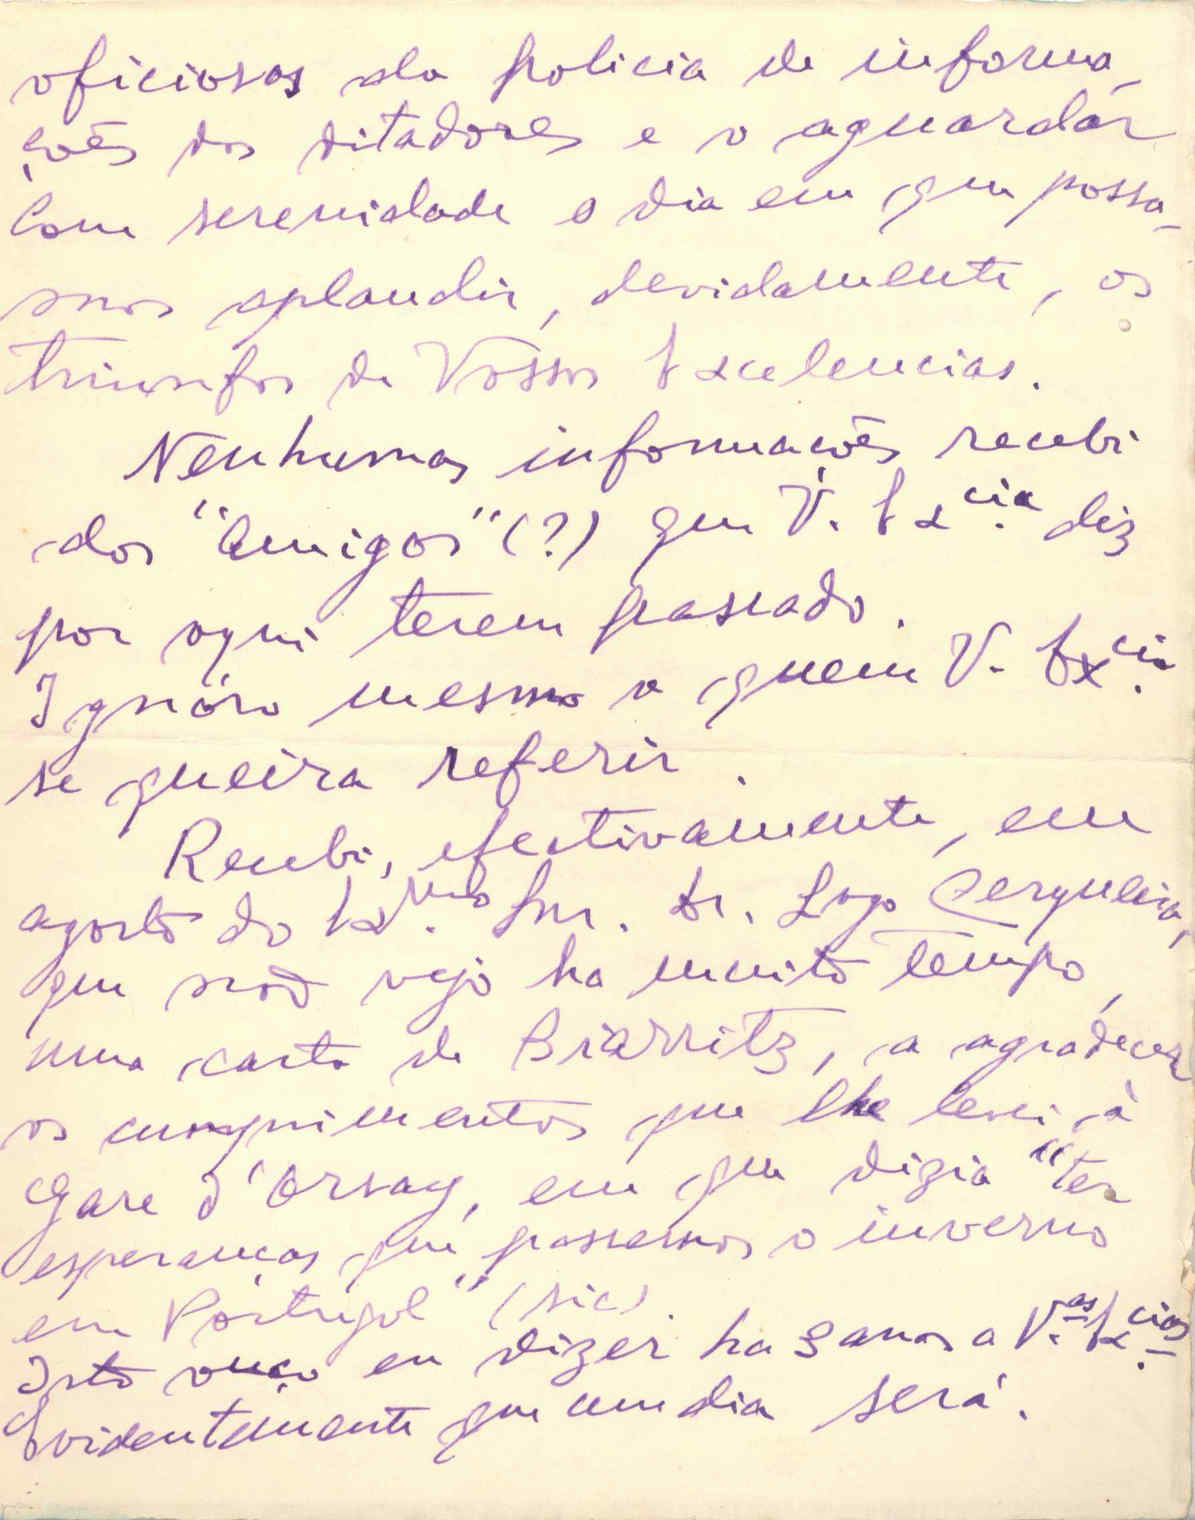 oficiosos da policia de informa
ções dos ditadores e o aguardár
com serenidade o dia em que possa-
mos aplaudir, devidamente, os
triunfos de Vóssas Excelencias.
Nenhumas informações recebi
dos "amigos" (?) que V. Ex.cia diz
por aqui terem passado.
Ignóro mesmo a quem V. Ex.cia
se queira referir.
Recebi, efectivamente, em
agosto do Ex.mo Snr. Dr. Lago Cerqueira,
que não vejo ha muito tempo,
uma carta de Biarritz, a agradecer
os cumprimentos que lhe levei à
Gare d'Orsay, em que dizia "ter
esperanças que passemos o inverno
em Portugal" (sic).
Isto ouço eu dizer ha 3 anos a V.as Ex.cias
Evidentemente que um dia será.